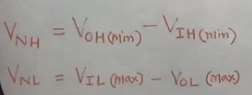 V_NH = V_OH(min) - V_IH(min)
V_NL = V_IL(max) - V_OL(max)